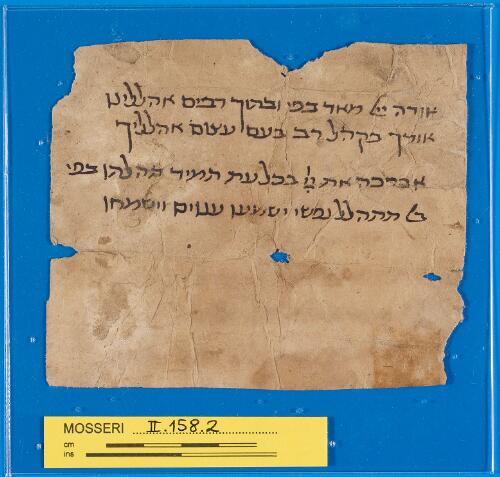 אודה יי מאד בפי ובתוך רבים אהללינו
אודך בקהל רב בעם עצום אהלליך
אברכה את יי בכל עת תמיד תהלתו בפי
ביי תתהלל נפשי ישמעו ענוים וישמחו
MOSSERI II.158.2
cm
ins